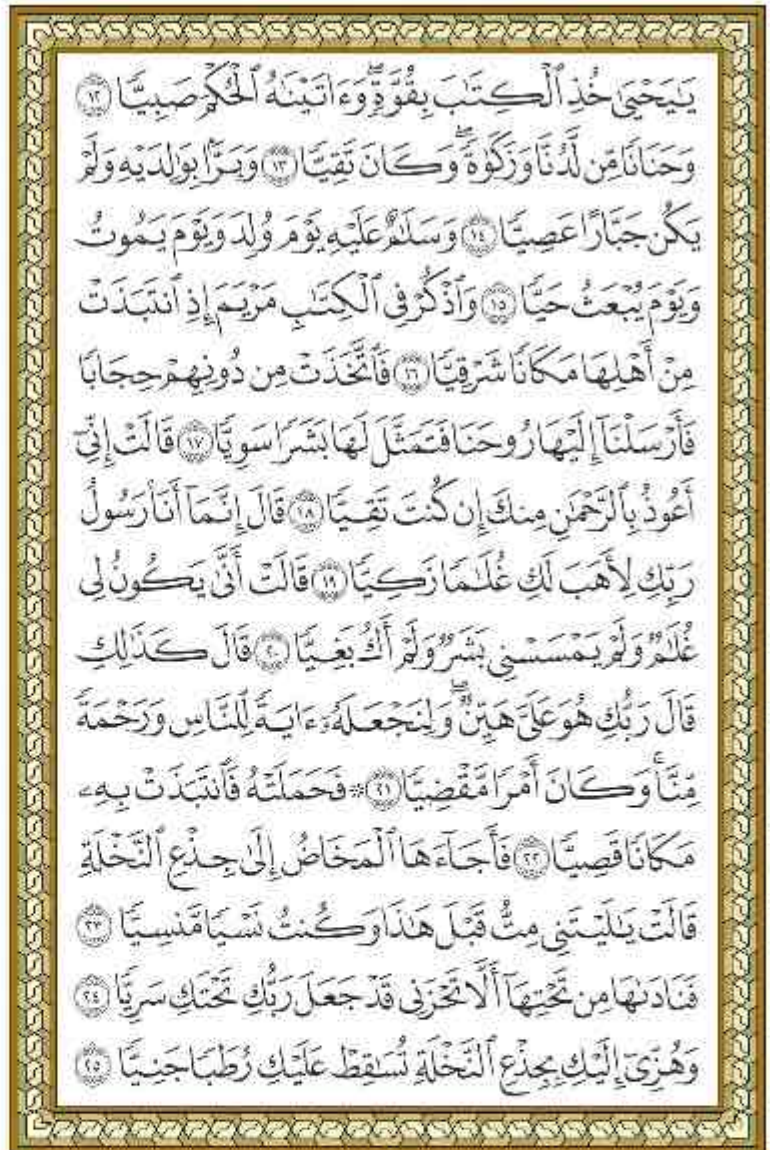 يَـٰيَحْيَىٰ خُذِ ٱلْكِتَـٰبَ بِقُوَّةٍۖ وَءَاتَيْنَـٰهُ ٱلْحُكْمَ صَبِيًّا ١٢
وَحَنَانًا مِّن لَّدُنَّا وَزَكَوٰةًۖ وَكَانَ تَقِيًّا ١٣ وَبَرًّۢا بِوَٰلِدَيْهِ وَلَمْ
يَكُن جَبَّارًا عَصِيًّا ١٤ وَسَلَـٰمٌ عَلَيْهِ يَوْمَ وُلِدَ وَيَوْمَ يَمُوتُ
وَيَوْمَ يُبْعَثُ حَيًّا ١٥ وَٱذْكُرْ فِى ٱلْكِتَـٰبِ مَرْيَمَ إِذِ ٱنتَبَذَتْ
مِنْ أَهْلِهَا مَكَانًا شَرْقِيًّا ١٦ فَٱتَّخَذَتْ مِن دُونِهِمْ حِجَابًا
فَأَرْسَلْنَآ إِلَيْهَا رُوحَنَا فَتَمَثَّلَ لَهَا بَشَرًا سَوِيًّا ١٧ قَالَتْ إِنِّىٓ
أَعُوذُ بِٱلرَّحْمَـٰنِ مِنكَ إِن كُنتَ تَقِيًّا ١٨ قَالَ إِنَّمَآ أَنَا۠ رَسُولُ
رَبِّكِ لِأَهَبَ لَكِ غُلَـٰمًا زَكِيًّا ١٩ قَالَتْ أَنَّىٰ يَكُونُ لِى
غُلَـٰمٌ وَلَمْ يَمْسَسْنِى بَشَرٌ وَلَمْ أَكُ بَغِيًّا ٢٠ قَالَ كَذَٰلِكِ
قَالَ رَبُّكِ هُوَ عَلَىَّ هَيِّنٌۖ وَلِنَجْعَلَهُۥٓ ءَايَةً لِّلنَّاسِ وَرَحْمَةً
مِّنَّاۚ وَكَانَ أَمْرًا مَّقْضِيًّا ٢١ ۞ فَحَمَلَتْهُ فَٱنتَبَذَتْ بِهِۦ
مَكَانًا قَصِيًّا ٢٢ فَأَجَآءَهَا ٱلْمَخَاضُ إِلَىٰ جِذْعِ ٱلنَّخْلَةِ
قَالَتْ يَـٰلَيْتَنِى مِتُّ قَبْلَ هَـٰذَا وَكُنتُ نَسْيًا مَّنسِيًّا ٢٣
فَنَادَىٰهَا مِن تَحْتِهَآ أَلَّا تَحْزَنِى قَدْ جَعَلَ رَبُّكِ تَحْتَكِ سَرِيًّا ٢٤
وَهُزِّىٓ إِلَيْكِ بِجِذْعِ ٱلنَّخْلَةِ تُسَـٰقِطْ عَلَيْكِ رُطَبًا جَنِيًّا ٢٥